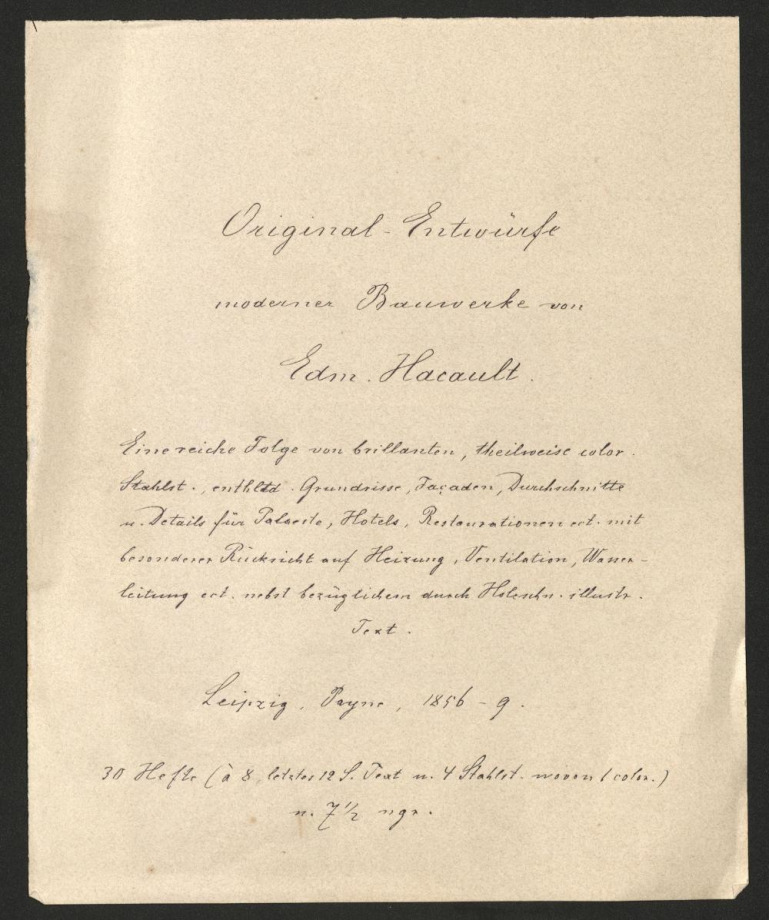 Original-Entwürfe
moderner Bauwerke von
Edm. Hacault.
Eine reiche Folge von brillanten, theilweise color.
Stahlst., enthltd. Grundrisse, Façaden, Durchschnitte
u. Details für Palaeste, Hotels, Restaurationen ect. mit
besonderer Rücksicht auf Heizung, Ventilation, Wasser-
leitung ect. nebst bezüglichem durch Holzschn. illustr.
Text.
Leipzig, Payne, 1856-9.
30 Hefte (à 8, letztes 12 S. Text u. 4 Stahlst. wovon 1 color.)
n. 7 1/2 ngr.